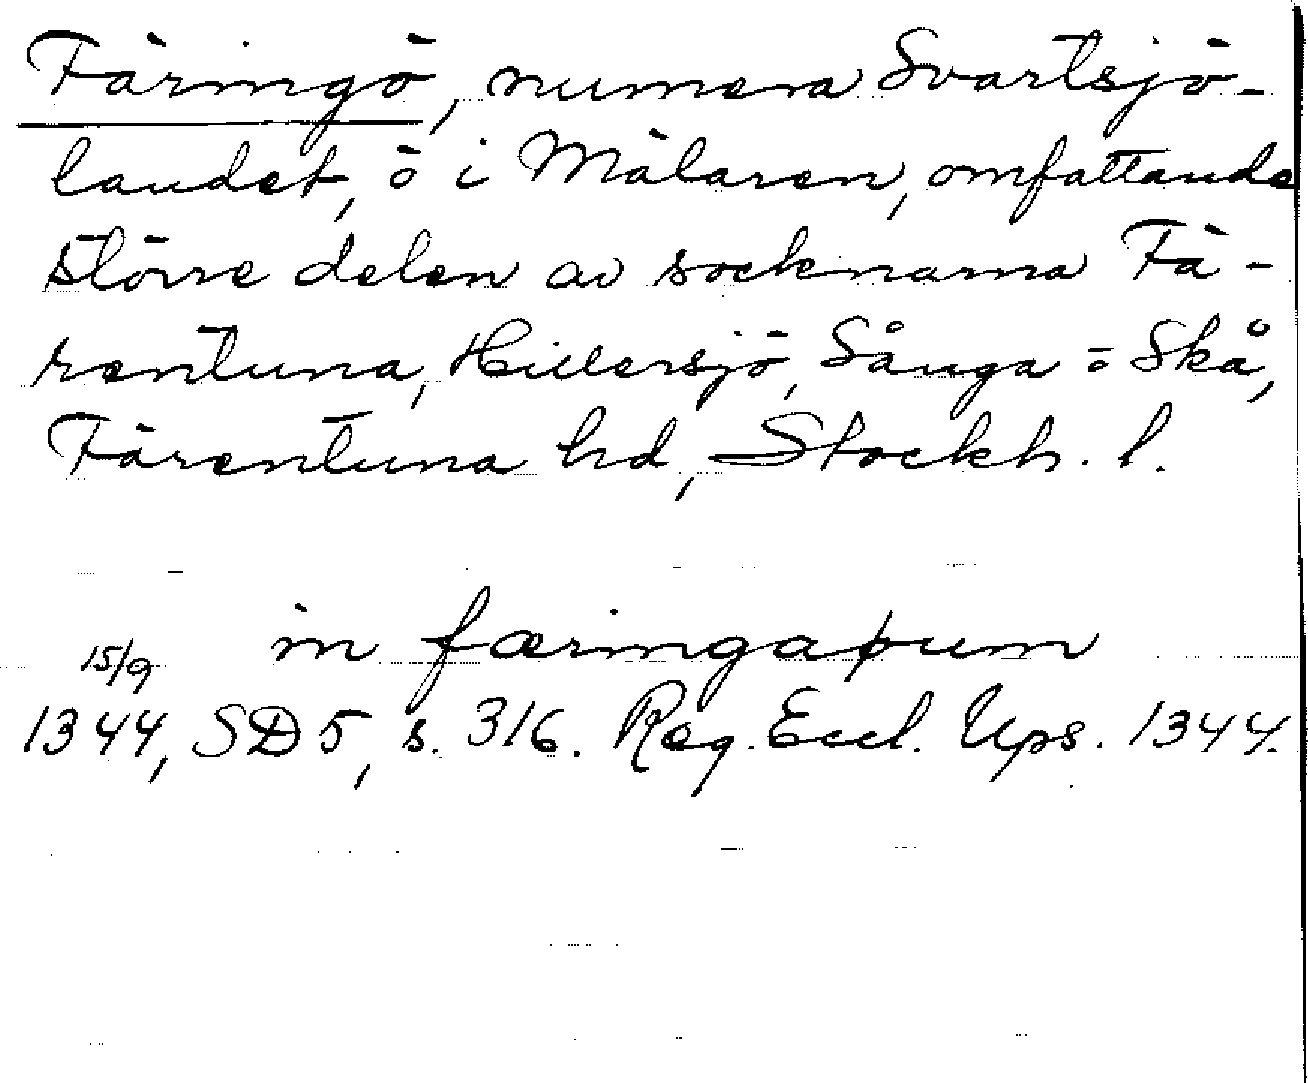 Färingö, numera Svartsjö-
landet, ö i Mälaren, omfattande
större delen av socknarna Fä-
rentuna, Hillersjö, Sånga o Skå,
Färentuna hd, Stockh. l.
in færingaþum
15/9
1344, SD 5, s. 316. Reg. Eccl. Ups. 1344.